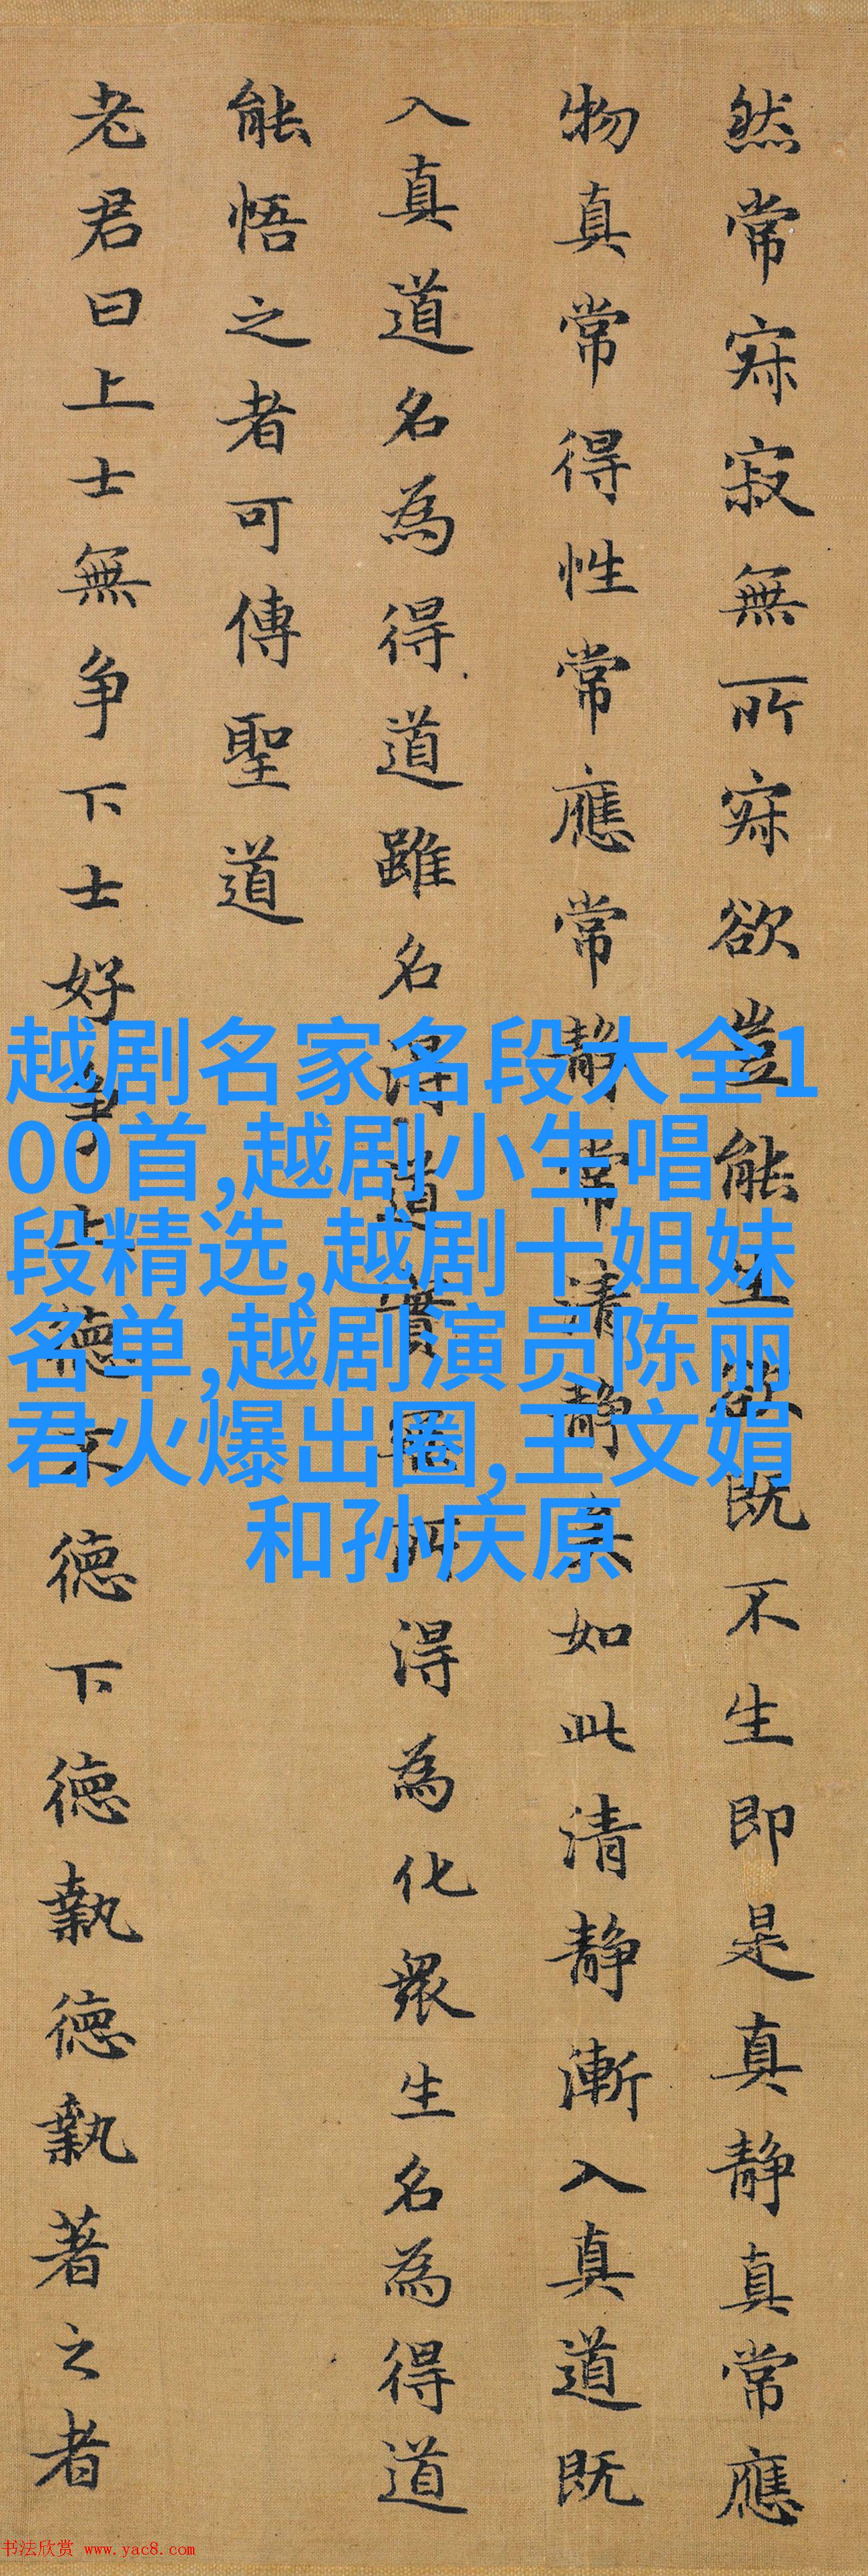 然常寂寂無所寂欲豈能生欲既不生即是真静真常應
物真常得性常應常静常清静矣如此清静漸入真道既
入真道名為得道雖名得道實無所得為化衆生名為得道
能悟之者可傳聖道
老君曰上士無争下士好争上德不德下德執德執著之者
越剧名家名段大全1
00首,越剧小生唱
段精选,越剧十姐妹
名单,越剧演员陈丽
君火爆出圈,王文娟
和孙庆原
书法欣赏 www.yac8.com